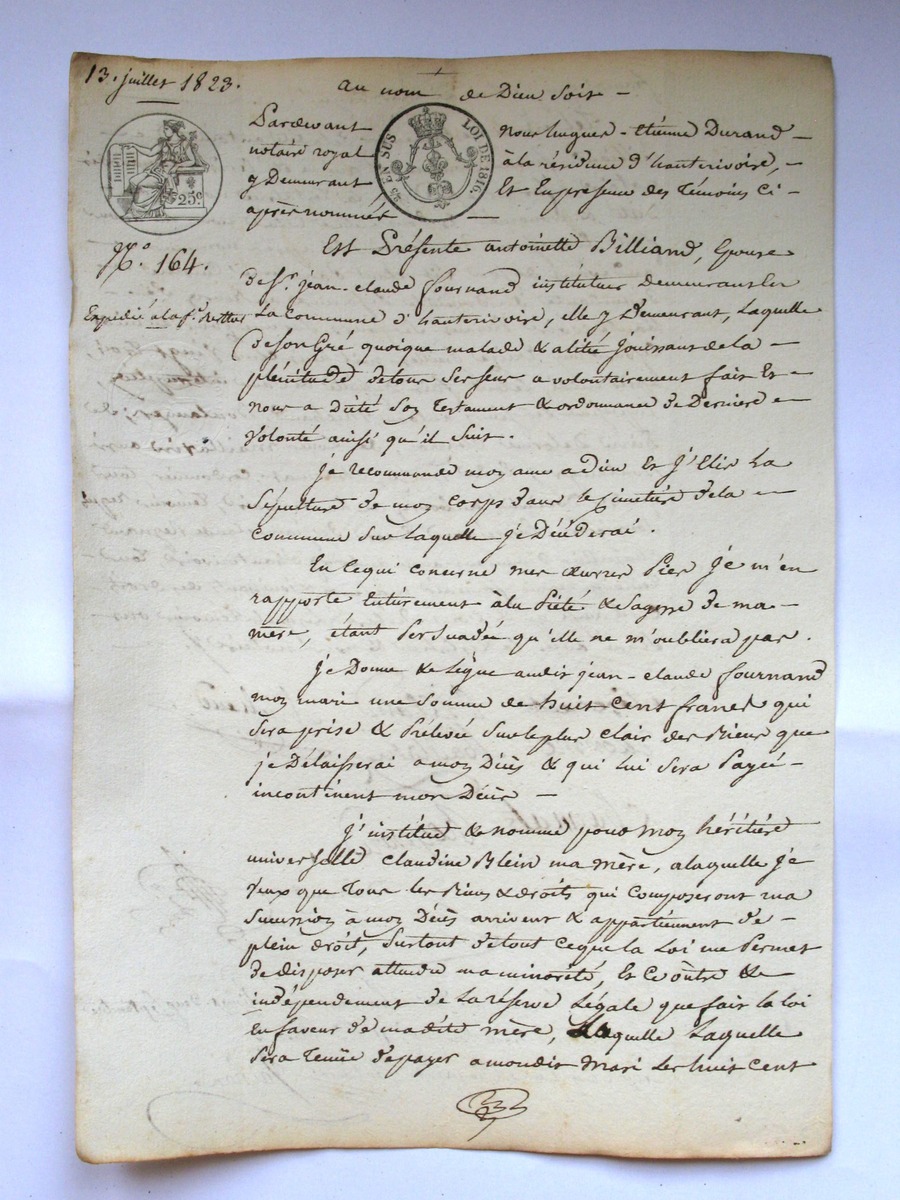 13. juillet 1823.
au nom de Dieu soit —
Pardevant nous hugues - Etiénne Durand —
notaire royal à la résidence d'hauterivoire, —
y Demeurant Et En présence des Témoins Ci -
après nommés —
25 EN SUS
LOI DE 1816.
25c
N.° 164.
Expédié à la
Est Présente antoinette Billiand, Epouse
de Sr. jean-claude fournand instituteur demeurant En
La Commune d'hauterivoire, elle y Demeurant, Laquelle
de son Gré quoique malade & alitée Jouissant de la —
plénitude de tous ses sens a volontairement fait Et —
nous a dicté Son Testament & ordonnance de Derniere —
Volonté ainsi qu'il Suit.
je recommande mon ame a dieu Et J'Elis La
Sépulture de mon corps dans le Cimetière de la —
commune Sur Laquelle je Décéderai.
En Ce qui concerne mes œuvres Pies Je m'en
rapporte Entièrement à la Piété & Sagesse de ma —
mère, étant Persuadée qu'elle ne m'oubliera pas.
je Donne & Lègue audit jean-claude fournand
mon mari une Somme de huit Cent francs qui
Sera prise & Prélevée Sur le plus clair des Biens que
je Délaisserai a mon Décès & qui Lui Sera Payée —
incontinent mon Décès —
J'institue & nomme pour mon héritière
universelle Claudine Blein ma mère, a laquelle je
Veux que Tous les Biens & droits qui Composeront ma
Succession à mon Décès arrivent & appartiennent de —
plein droit, Surtout de tout Ce que la Loi me Permet
de disposer attendu ma minorité, Et Ce outre &
indépendement de La réserve Légale que fait la loi
En faveur de madite mère, Laquelle Laquelle
Sera Tenue de payer a mondit Mari Les huit Cent